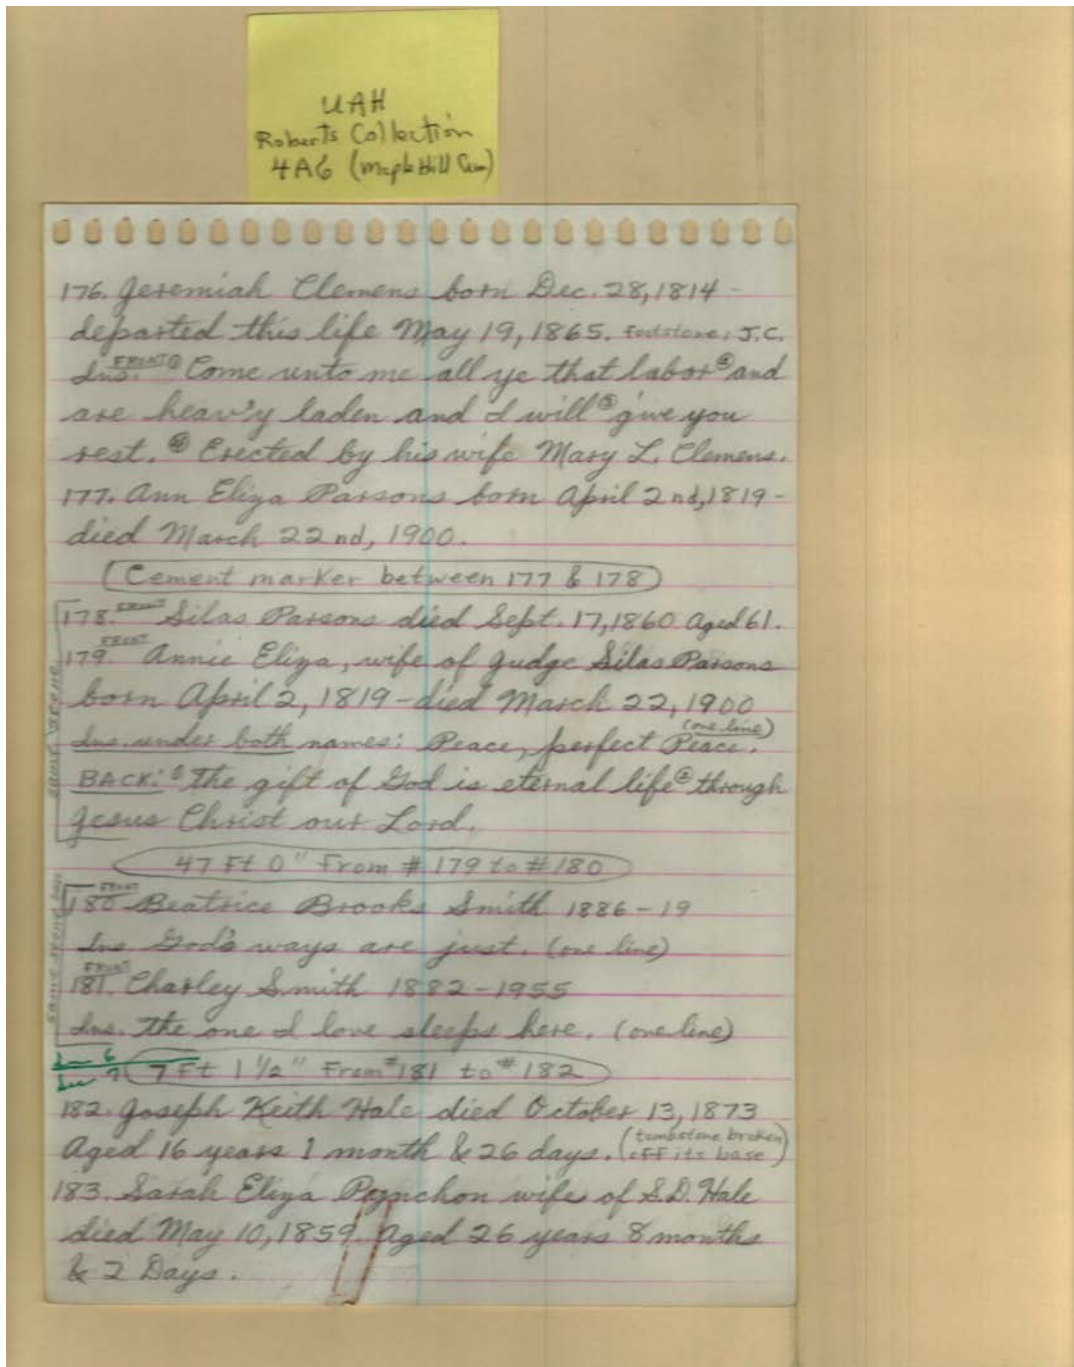 UAH
Roberts Collection
4A6 (Maple Hill Cem)
176. Jeremiah Clemens born Dec. 28, 1814 -
departed this life May 19, 1865. Footstone: J.C.
Ins. FRONT ① Come unto me all ye that labor ② and
are heav'y laden and I will ③ give you
rest. ④ Erected by his wife Mary L. Clemens.
177. Ann Eliza Parsons born April 2nd, 1819 -
died March 22nd, 1900.
Cement marker between 177 & 178
SAME STONE
178. FRONT Silas Parsons died Sept. 17, 1860 Aged 61.
179. FRONT Annie Eliza, wife of Judge Silas Parsons
born April 2, 1819 - died March 22, 1900
Ins. under both names: Peace, perfect Peace. (one line)
BACK: ① The gift of God is eternal life ② through
Jesus Christ our Lord.
47 Ft 0" From # 179 to # 180
SAME STONE
180 FRONT Beatrice Brooks Smith 1886 - 19
Ins God's ways are just. (one line)
181. FRONT Charley Smith 1882 - 1955
Ins. The one I love sleeps here. (one line)
6
7
7 Ft 1 1/2" From # 181 to # 182
182. Joseph Keith Hale died October 13, 1873
Aged 16 years 1 month & 26 days. (tombstone broken off its base)
183. Sarah Eliza Poynchon wife of S.D. Hale
died May 10, 1859. Aged 26 years 8 months
& 2 Days.